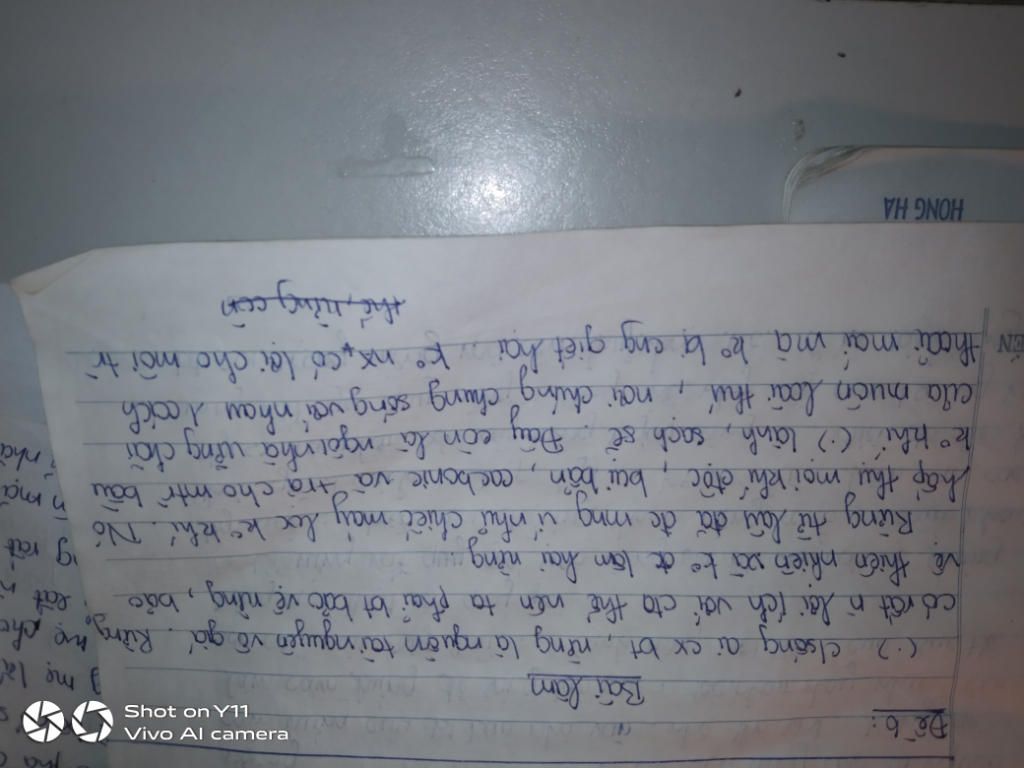 Đề 6:
Bài làm
(.) c/sống ai cx bt, rừng là nguồn tài nguyên vô giá. Rừng
có rất n lợi ích với cta thế nên ta phải bt bảo vệ rừng, bảo
vệ thiên nhiên và ko đc làm hại rừng.
Rừng từ lâu đã đc mng ví như chiếc máy lọc ko khí. Nó
hấp thụ mọi khí độc, bụi bẩn, cacbonic và trả cho mtr bầu
ko khí (.) lành, sạch sẽ. Đây còn là ngôi nhà vững chãi
của muôn loài thú, nơi chúng chung sống với nhau 1 cách
thoải mái mà ko bị cng giết hại. Ko nx, có lợi cho môi tr
thế, rừng còn
HONG HA
ẸN
Shot on Y11
Vivo AI camera